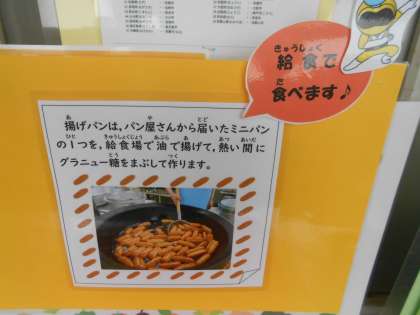 給食で
食べます♪
揚げパンは，パン屋さんから届いたミニパン
の１つを，給食場で油で揚げて，熱い間に
グラニュー糖をまぶして作ります。